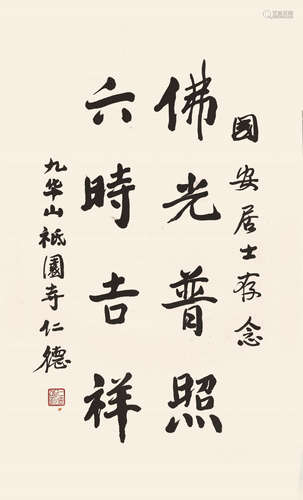 國安居士存念
佛光普照
六時吉祥
九华山祇園寺仁德